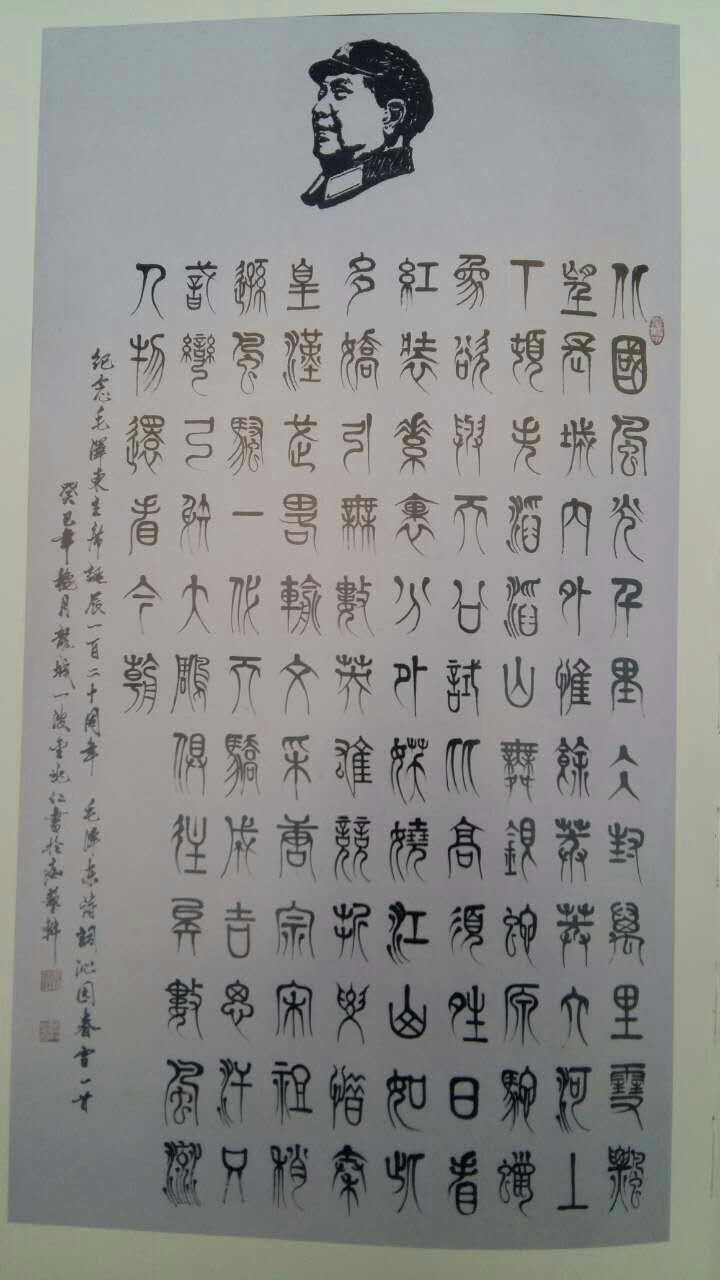 北國風光千里冰封萬里雪飄
望長城內外惟餘莽莽大河上
下頓失滔滔山舞銀蛇原馳蠟
象欲與天公試比高須晴日看
紅裝素裹分外妖嬈江山如此
多嬌引無數英雄競折腰惜秦
皇漢武略輸文采唐宗宋祖稍
遜風騷一代天驕成吉思汗只
識彎弓射大雕俱往矣數風流
人物還看今朝
紀念毛澤東主席誕辰一百二十周年 毛澤東詩詞沁园春雪一首
癸巳年月龍城一波仁書於